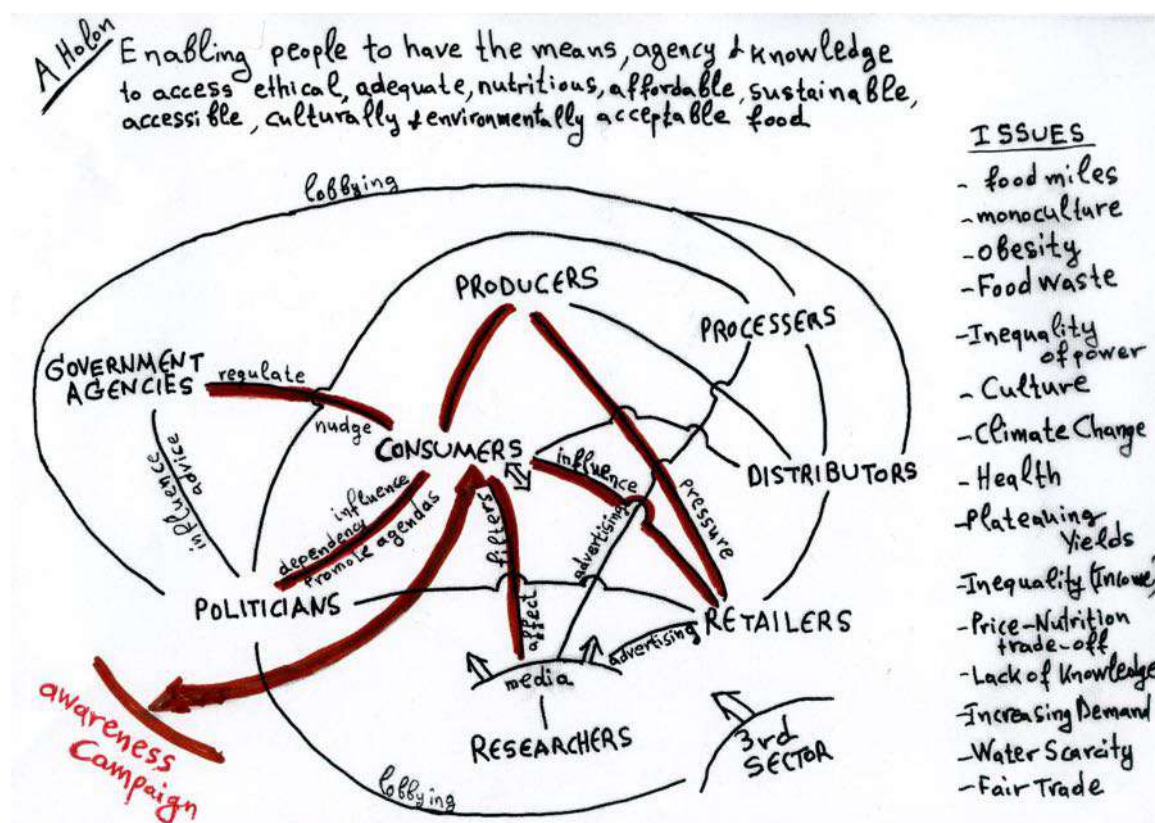 A Holon
Enabling people to have the means, agency & knowledge
to access ethical, adequate, nutritious, affordable, sustainable,
accessible, culturally & environmentally acceptable food
ISSUES
- food miles
- monoculture
- obesity
- Food waste
- Inequality
of power
- Culture
- Climate Change
- Health
- Plateauing
Yields
- Inequality (Income)
- Price-Nutrition
trade-off
- Lack of Knowledge
- Increasing Demand
- Water Scarcity
- Fair Trade
lobbying
PRODUCERS
PROCESSERS
GOVERNMENT
AGENCIES
regulate
nudge
CONSUMERS
DISTRIBUTORS
influence
advice
influence
dependency
promote agendas
filters
affect
influence
pressure
advertising
POLITICIANS
RETAILERS
advertising
media
RESEARCHERS
3rd
SECTOR
lobbying
awareness
Campaign